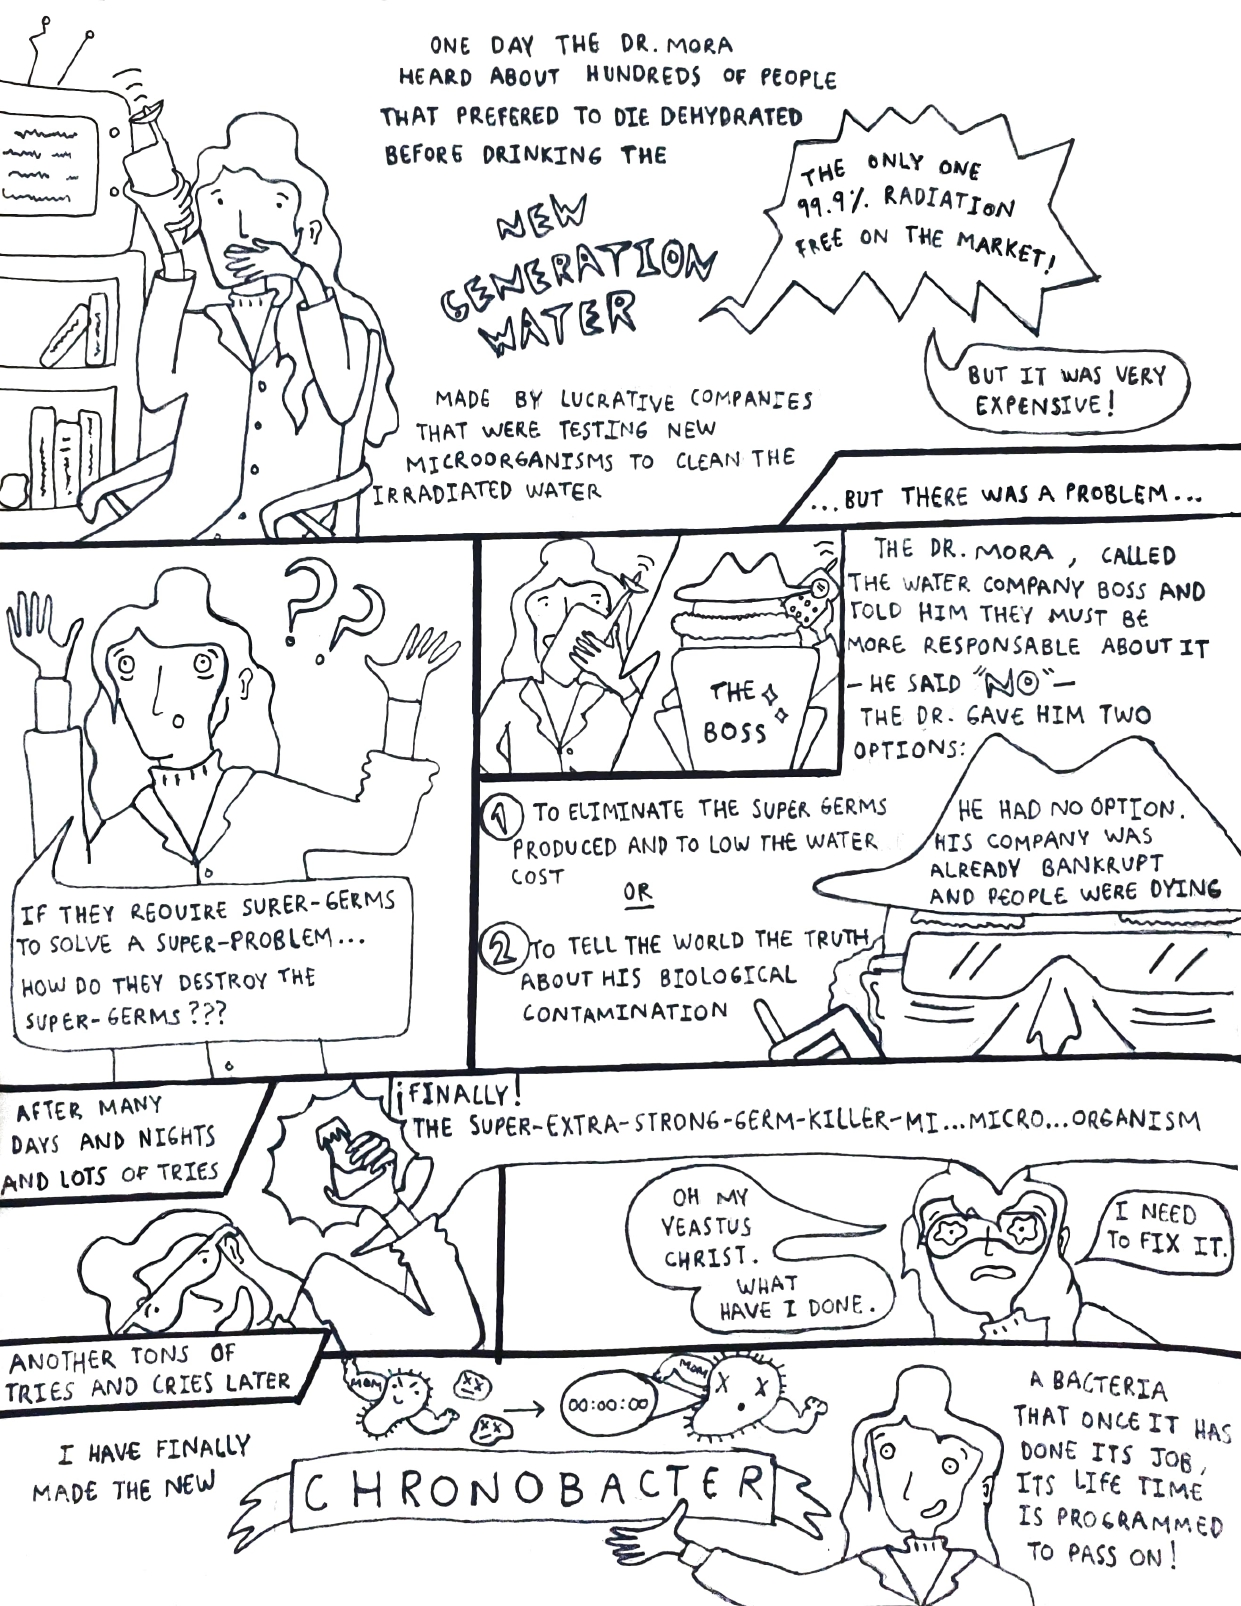 ONE DAY THE DR. MORA
HEARD ABOUT HUNDREDS OF PEOPLE
THAT PREFERED TO DIE DEHYDRATED
BEFORE DRINKING THE
NEW
GENERATION
WATER
THE ONLY ONE
99.9% RADIATION
FREE ON THE MARKET!
BUT IT WAS VERY
EXPENSIVE!
MADE BY LUCRATIVE COMPANIES
THAT WERE TESTING NEW
MICROORGANISMS TO CLEAN THE
IRRADIATED WATER
...BUT THERE WAS A PROBLEM...
IF THEY REQUIRE SURER-GERMS
TO SOLVE A SUPER-PROBLEM...
HOW DO THEY DESTROY THE
SUPER-GERMS???
THE
BOSS
THE DR. MORA, CALLED
THE WATER COMPANY BOSS AND
TOLD HIM THEY MUST BE
MORE RESPONSABLE ABOUT IT
-HE SAID "NO"-
THE DR. GAVE HIM TWO
OPTIONS:
1 TO ELIMINATE THE SUPER GERMS
PRODUCED AND TO LOW THE WATER
COST
OR
2 TO TELL THE WORLD THE TRUTH
ABOUT HIS BIOLOGICAL
CONTAMINATION
HE HAD NO OPTION.
HIS COMPANY WAS
ALREADY BANKRUPT
AND PEOPLE WERE DYING
AFTER MANY
DAYS AND NIGHTS
AND LOTS OF TRIES
¡FINALLY!
THE SUPER-EXTRA-STRONG-GERM-KILLER-MI...MICRO...ORGANISM
OH MY
YEASTUS
CHRIST.
WHAT
HAVE I DONE.
I NEED
TO FIX IT.
ANOTHER TONS OF
TRIES AND CRIES LATER
I HAVE FINALLY
MADE THE NEW
MOM
00:00:00
MOM
CHRONOBACTER
A BACTERIA
THAT ONCE IT HAS
DONE ITS JOB,
ITS LIFE TIME
IS PROGRAMMED
TO PASS ON!